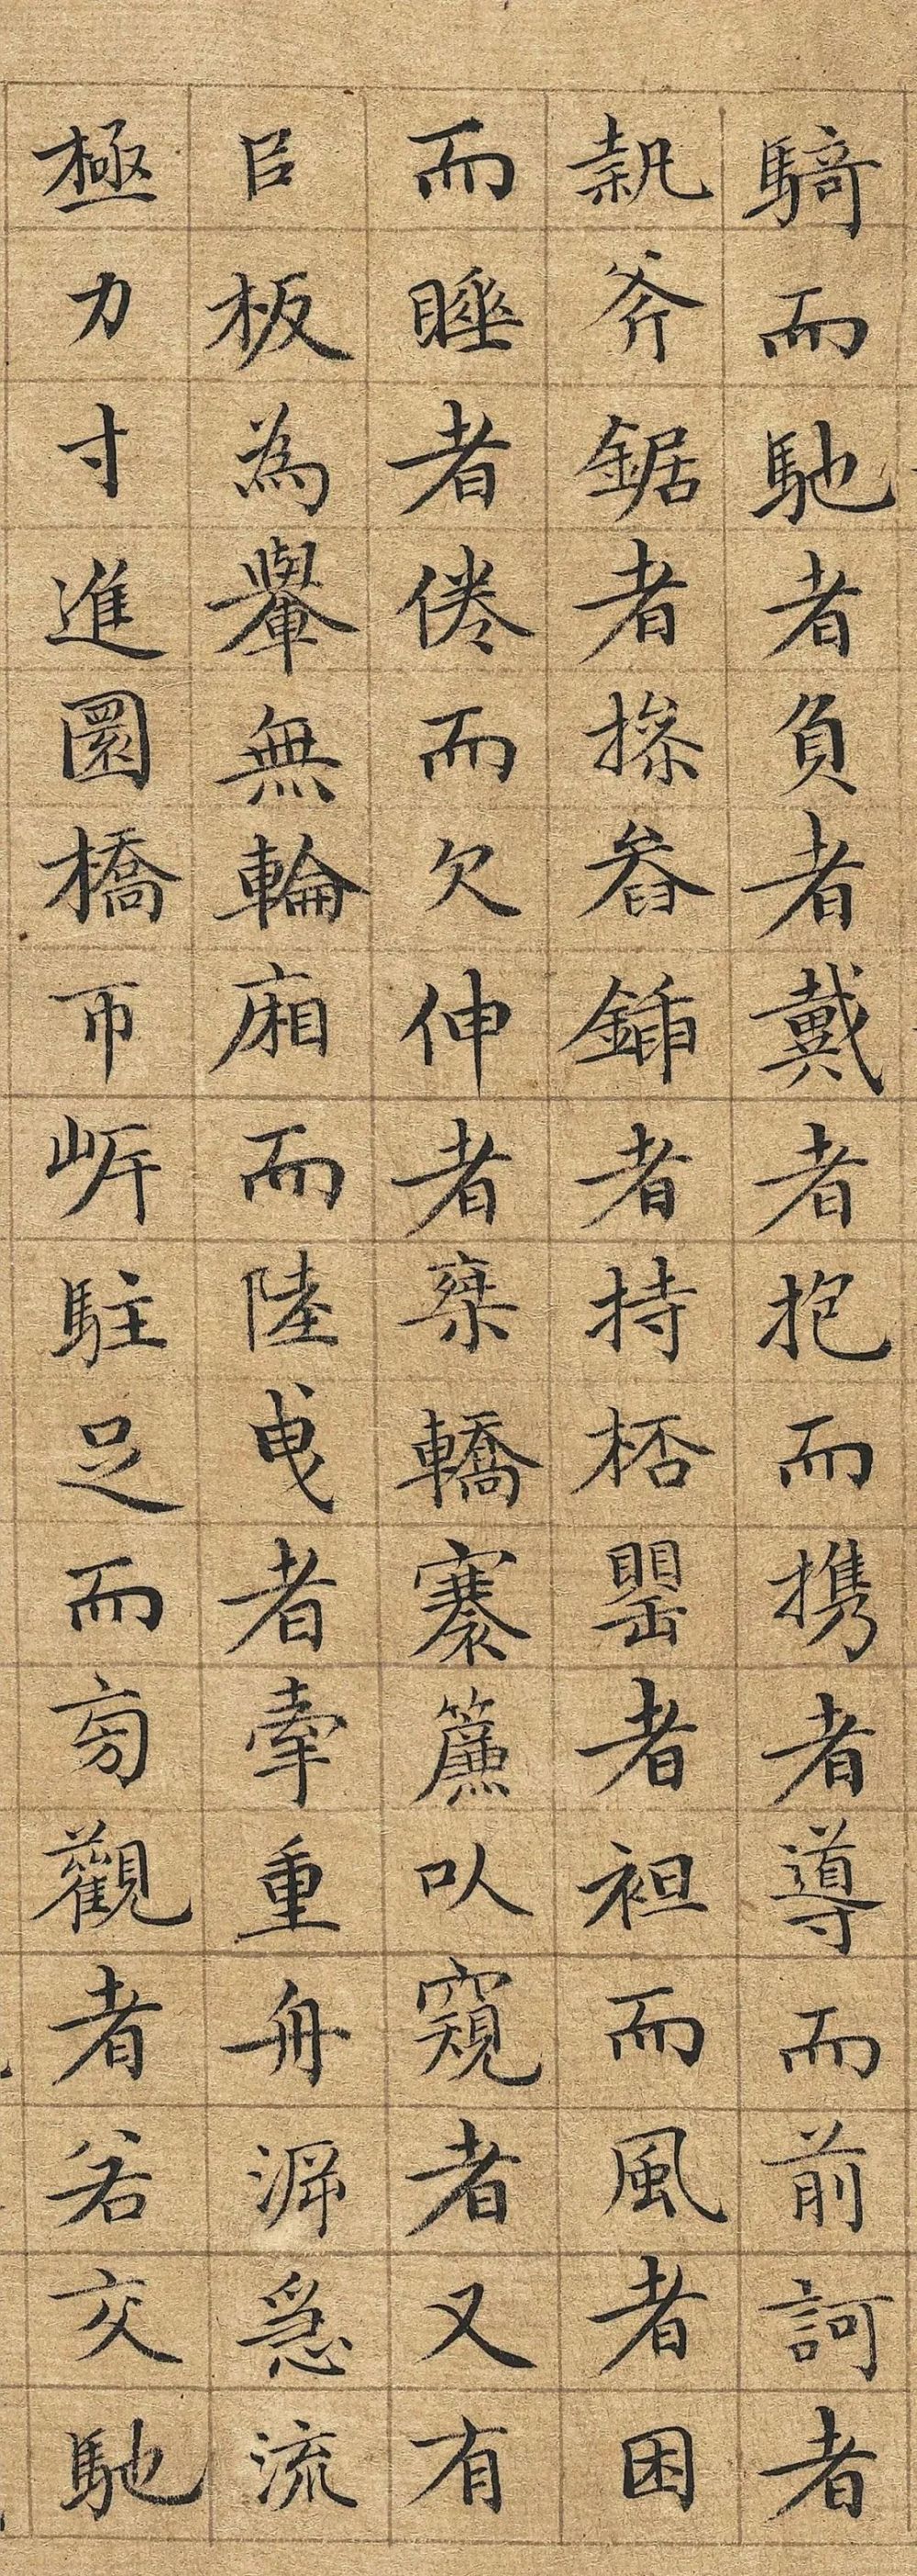 騎而馳者負者戴者抱而携者導而前訶者
執斧鋸者㨮畚鍤者持桮罌者袒而風者困
而睡者倦而欠伸者乘轎褰簾以窺者又有
以板為轝無輪廂而陸曳者牽重舟泝急流
極力寸進圜橋帀㟁駐足而旁觀者若交馳